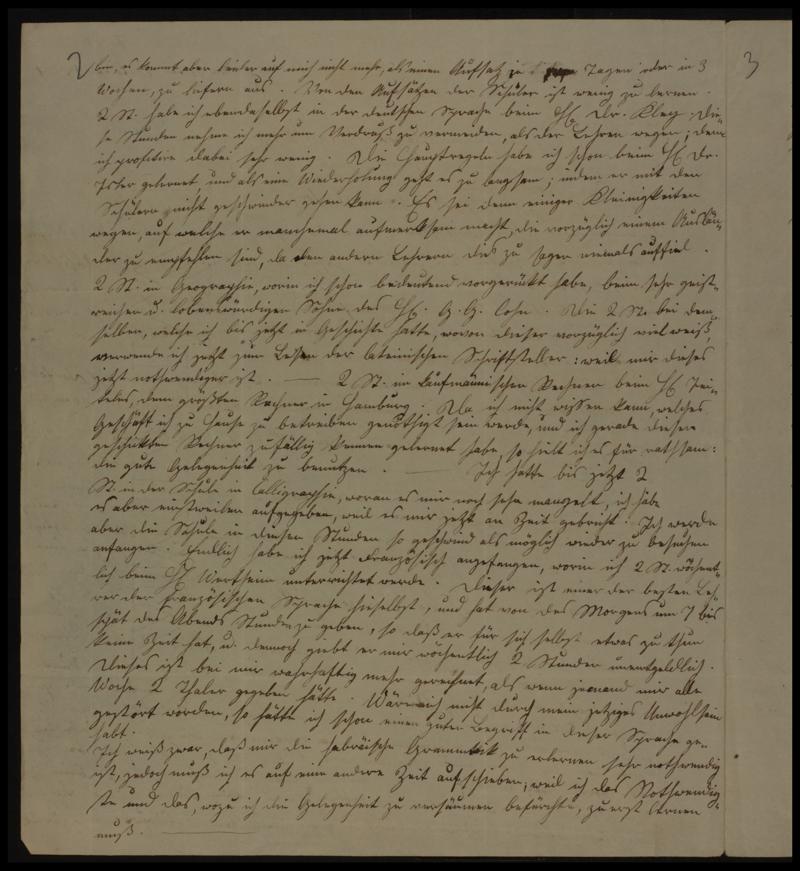 ben, es kommt aber leider auf mich nicht mehr, als einen Aufsatz in Tagen oder in 3
Wochen, zu liefern aus. Von den Aufsätzen der Schüler ist wenig zu lernen.
2 St. habe ich ebendaselbst in der deutschen Sprache beim H Dr. Kley. Die-
se Stunden nehme ich mehr um Verdruß zu vermeiden, als der Lehren wegen; denn
ich profitire dabei sehr wenig. Die Hauptregeln habe ich schon beim H Dr.
Isler gelernet, und als eine Wiederholung geht es zu langsam; indem er mit den
Schülern nicht geschwinder gehen kann. Es sei denn einiger Kleinigkeiten
wegen, auf welche er manchemal aufmerksam macht, die vorzüglich einem Auslän-
der zu empfehlen sind, da den andern Lehrern dies zu sagen niemals auffiel.
2 St. in Geographie, worin ich schon bedeutend vorgerückt habe, beim sehr geist-
reichen u. lobenswürdigen Sohne des H. G. G. Cohn. Die 2 St. bei dem-
selben, welche ich bis jetzt in Geschichte hatte, wovon dieser vorzüglich viel weiß,
verwende ich jetzt zum Lesen der lateinischen Schriftsteller: weil mir dieses
jetzt nothwendiger ist. — 2 St. im kaufmännischen Rechnen beim H
dem größten Rechner in Hamburg. Da ich nicht wissen kann, welches
Geschäft ich zu Hause zu betreiben genöthigt sein werde, und ich gerade diesen
geschickten Rechner zufällig kennen gelernet habe, so hielt ich es für rathsam:
die gute Gelegenheit zu benutzen. — Ich hatte bis jetzt 2
St. in der Schule in Calligraphie, woran es mir noch sehr mangelt, ich habe
es aber einstweilen aufgegeben, weil es mir jetzt an Zeit gebricht. Ich werde
aber die Schule in diesen Stunden so geschwind als möglich wieder zu besuchen
anfangen. Endlich habe ich jetzt Französisch angefangen, worin ich 2 St. wöchent-
lich beim H Wertheim unterrichtet werde. Dieser ist einer der besten Leh-
rer der französischen Sprache hieselbst, und hat von des Morgens um 7 bis
spät des Abends Stunden zu geben, so daß er für sich selbst etwas zu thun
keine Zeit hat, u. dennoch giebt er mir wöchentlich 2 Stunden unentgeldlich.
Dieses ist bei mir wahrhaftig mehr gerechnet, als wenn jemand mir alle
Woche 2 Thaler gegeben hätte. Wäre ich nicht durch mein jetziges Unwohlsein
gestört worden, so hätte ich schon einen guten Begriff in dieser Sprache ge-
habt.
Ich weiß zwar, daß mir die hebräische Grammatik zu erlernen sehr nothwendig
ist, jedoch muß ich es auf eine andere Zeit aufschieben; weil ich das Nothwendig-
ste und das, wozu ich die Gelegenheit zu versäumen befürchte, zuerst lernen
muß.
3